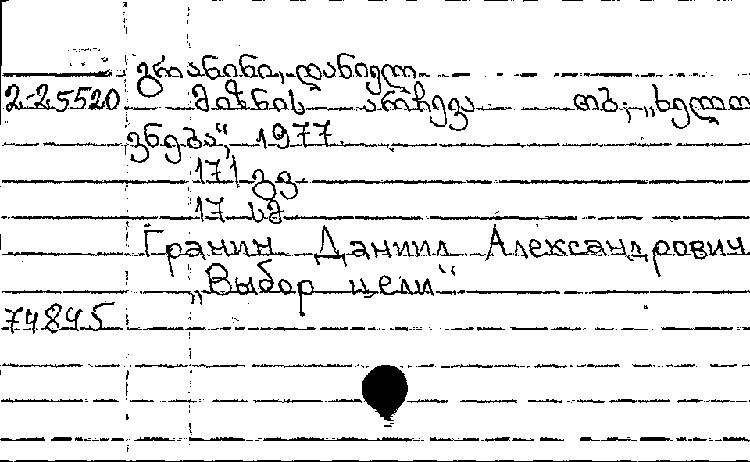 გრანინი, დანიელ
2-25520 მიზნის არჩევა თბ, „ხელო
ვნება“, 1977.
171 გვ.
17 სმ
Гранин Даниил Александрович
„Выбор цели“
74845